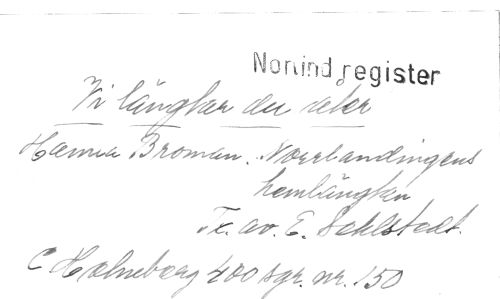 Nonind register
Vi längtar du åter
Hanna Broman. Norrlandingens
hemlängtan
Tx. av. E. Sehlstedt.
C Holmberg 400 sgr. nr. 150